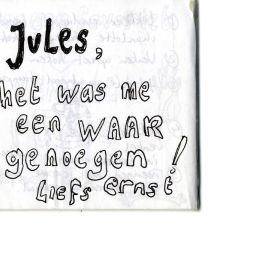 Jules,
het was me
een WAAR
genoegen!
Liefs ernst